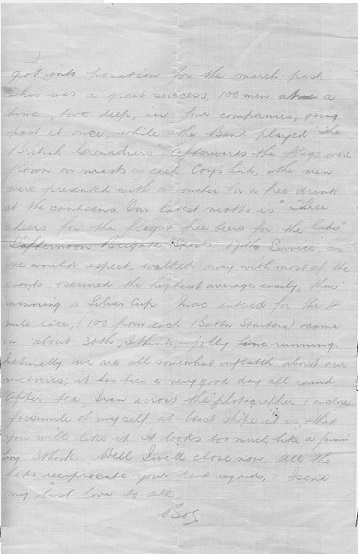 got into position for the march past
This was a great success, 100 men
time, two deep, in four companies, going
past at once, while the Band played The
British Grenadiers. Afterwards the flags were
flown on masts in each Coy's hut, the men
were presented with a for a free drink
at the canteens. Our latest motto is "Three
cheers for the flags & free beers for the lads"
afternoon Brigade Sports 17th Service, as
one would expect, walked away with most of the
events & secured the highest average easily, thus
winning a Silver Cup. I was entered for the 4
mile race, (100 from each Battn Started) & came
in about 30th, I think, jolly fine running.
Naturally we are all somewhat inflated about our
victories, it has been a very good day all round.
After tea I ran across the photographer & enclose
facsimile of myself at least I hope it is, & that
you will like it. It looks too much like a
boy I think. Well I will close now. All the
lads reciprocate your kind regards, I send
my best love to all.
Bob.